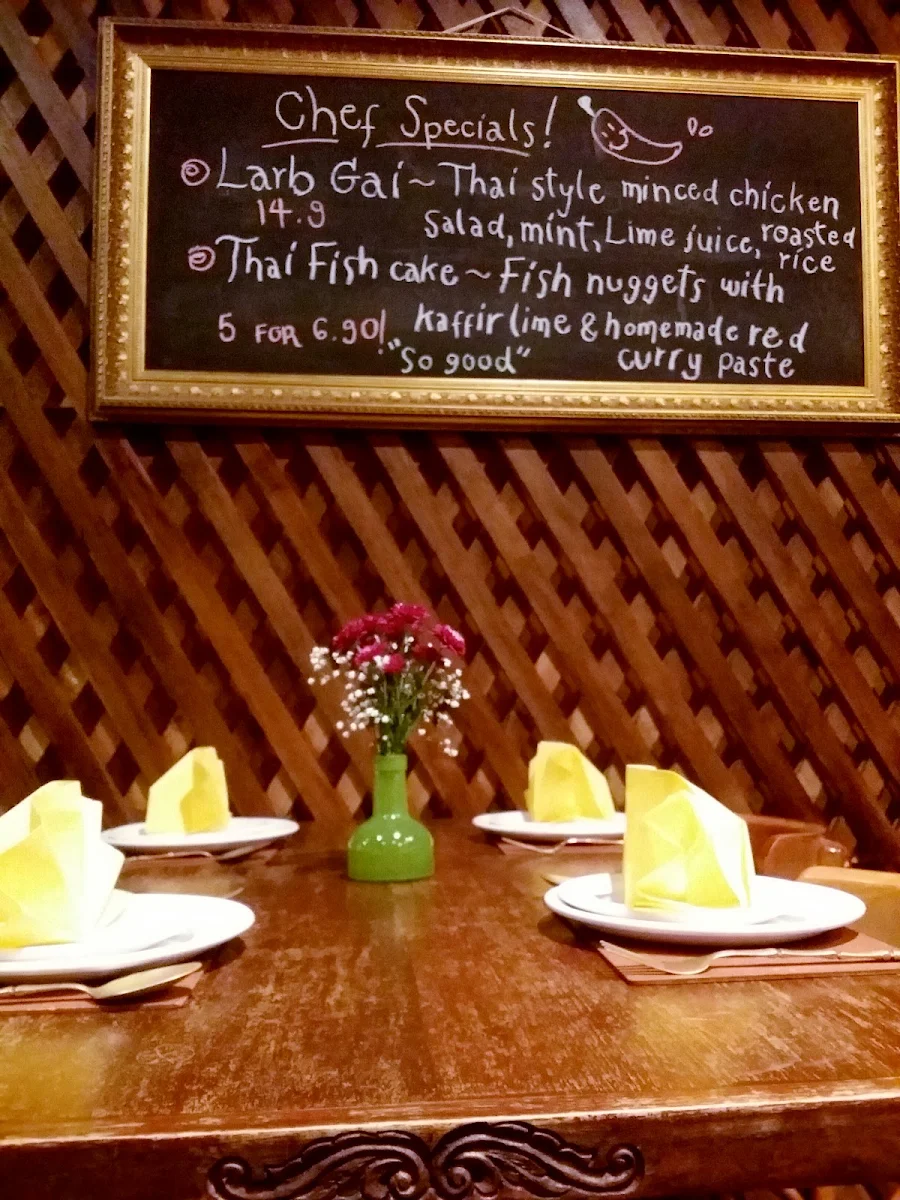 Chef Specials!
Larb Gai ~ Thai style minced chicken
14.9 salad, mint, Lime juice, roasted rice
Thai Fish cake ~ Fish nuggets with
5 FOR 6.90! kaffir lime & homemade red
"So good" curry paste